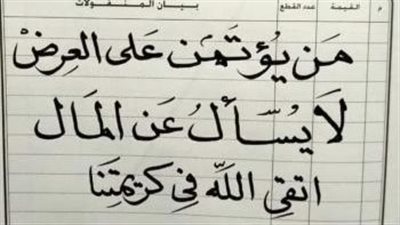 م القيمة عدد القطع بيان المنقولات
مَن يُؤتَمَن عَلى العِرضْ
لَا يُسَأَلُ عَن المَال
اتقي اللَّه في كريمتِنَا